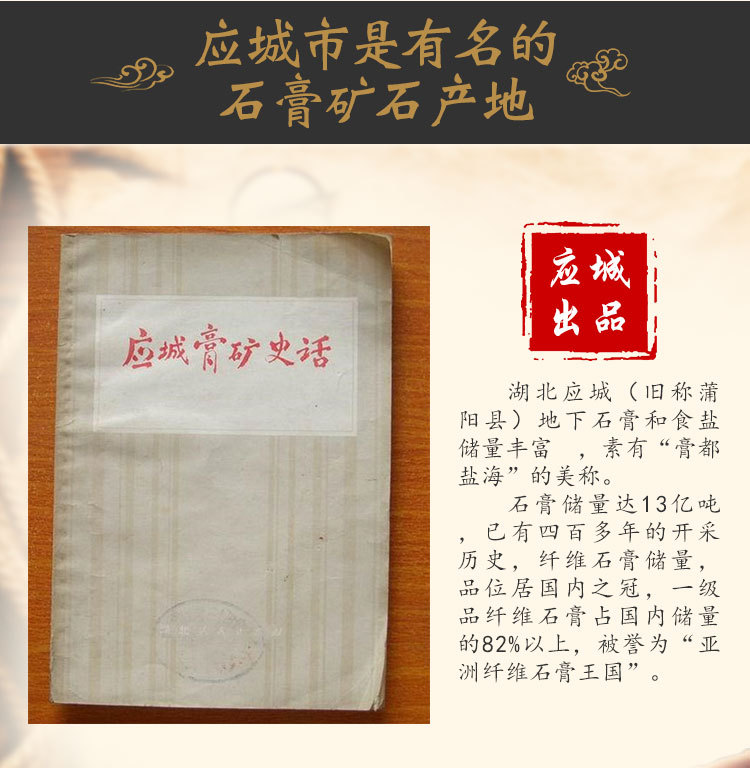 应城市是有名的
石膏矿石产地
应城膏矿史话
应城
出品
湖北应城（旧称蒲
阳县）地下石膏和食盐
储量丰富 ，素有“膏都
盐海”的美称。
石膏储量达13亿吨
，已有四百多年的开采
历史，纤维石膏储量，
品位居国内之冠，一级
品纤维石膏占国内储量
的82%以上，被誉为“亚
洲纤维石膏王国”。